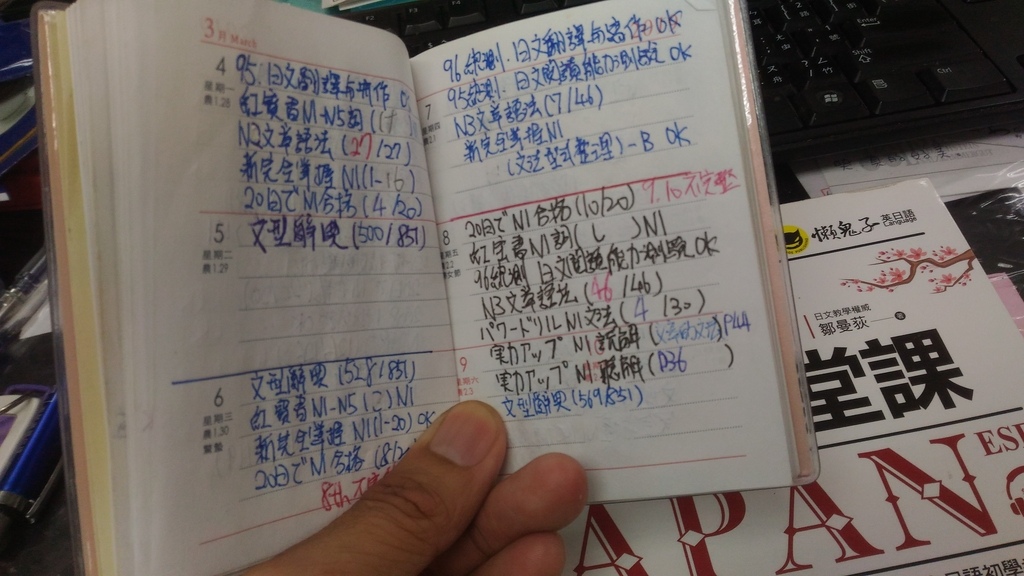 3月 March
4
星期一
農1.28
95.日文翻譯與習作 O
紅寶書N1-N5詞(
N2文章語法(27/27)
新完全掌握N1(1-16)
20日でN1合格(4/20)
5
星期二
農1.29
文型辭典(500/851)
6
星期三
農1.30
驚蟄
文型辭典(528/851)
紅寶書N1-N5( )N1
新完全掌握N1(1-20)OK
20日でN1合格(8/20
7
96統測.日文翻譯與寫作 OK
95統測.日文閱讀能力測驗 OK
N3文章語法(7/46)
新完全掌握N1
(文法型式整理)-B OK
8
20日でN1合格(10/20) 9.10不完整
紅宝書N1詞(し )N1
96統測 日文閱讀能力測驗 OK
N3文章語法(46/46)
パワードリルN1文法(4/30)
9
実力アップN1読解( )P44
実力アップN1聴解(P36 )
文型辭典(569/851)
Enter
懶鬼子
英日語
Language
日文教學權威
鄒曼荻
著
堂課
APAN
ESE
日語初學